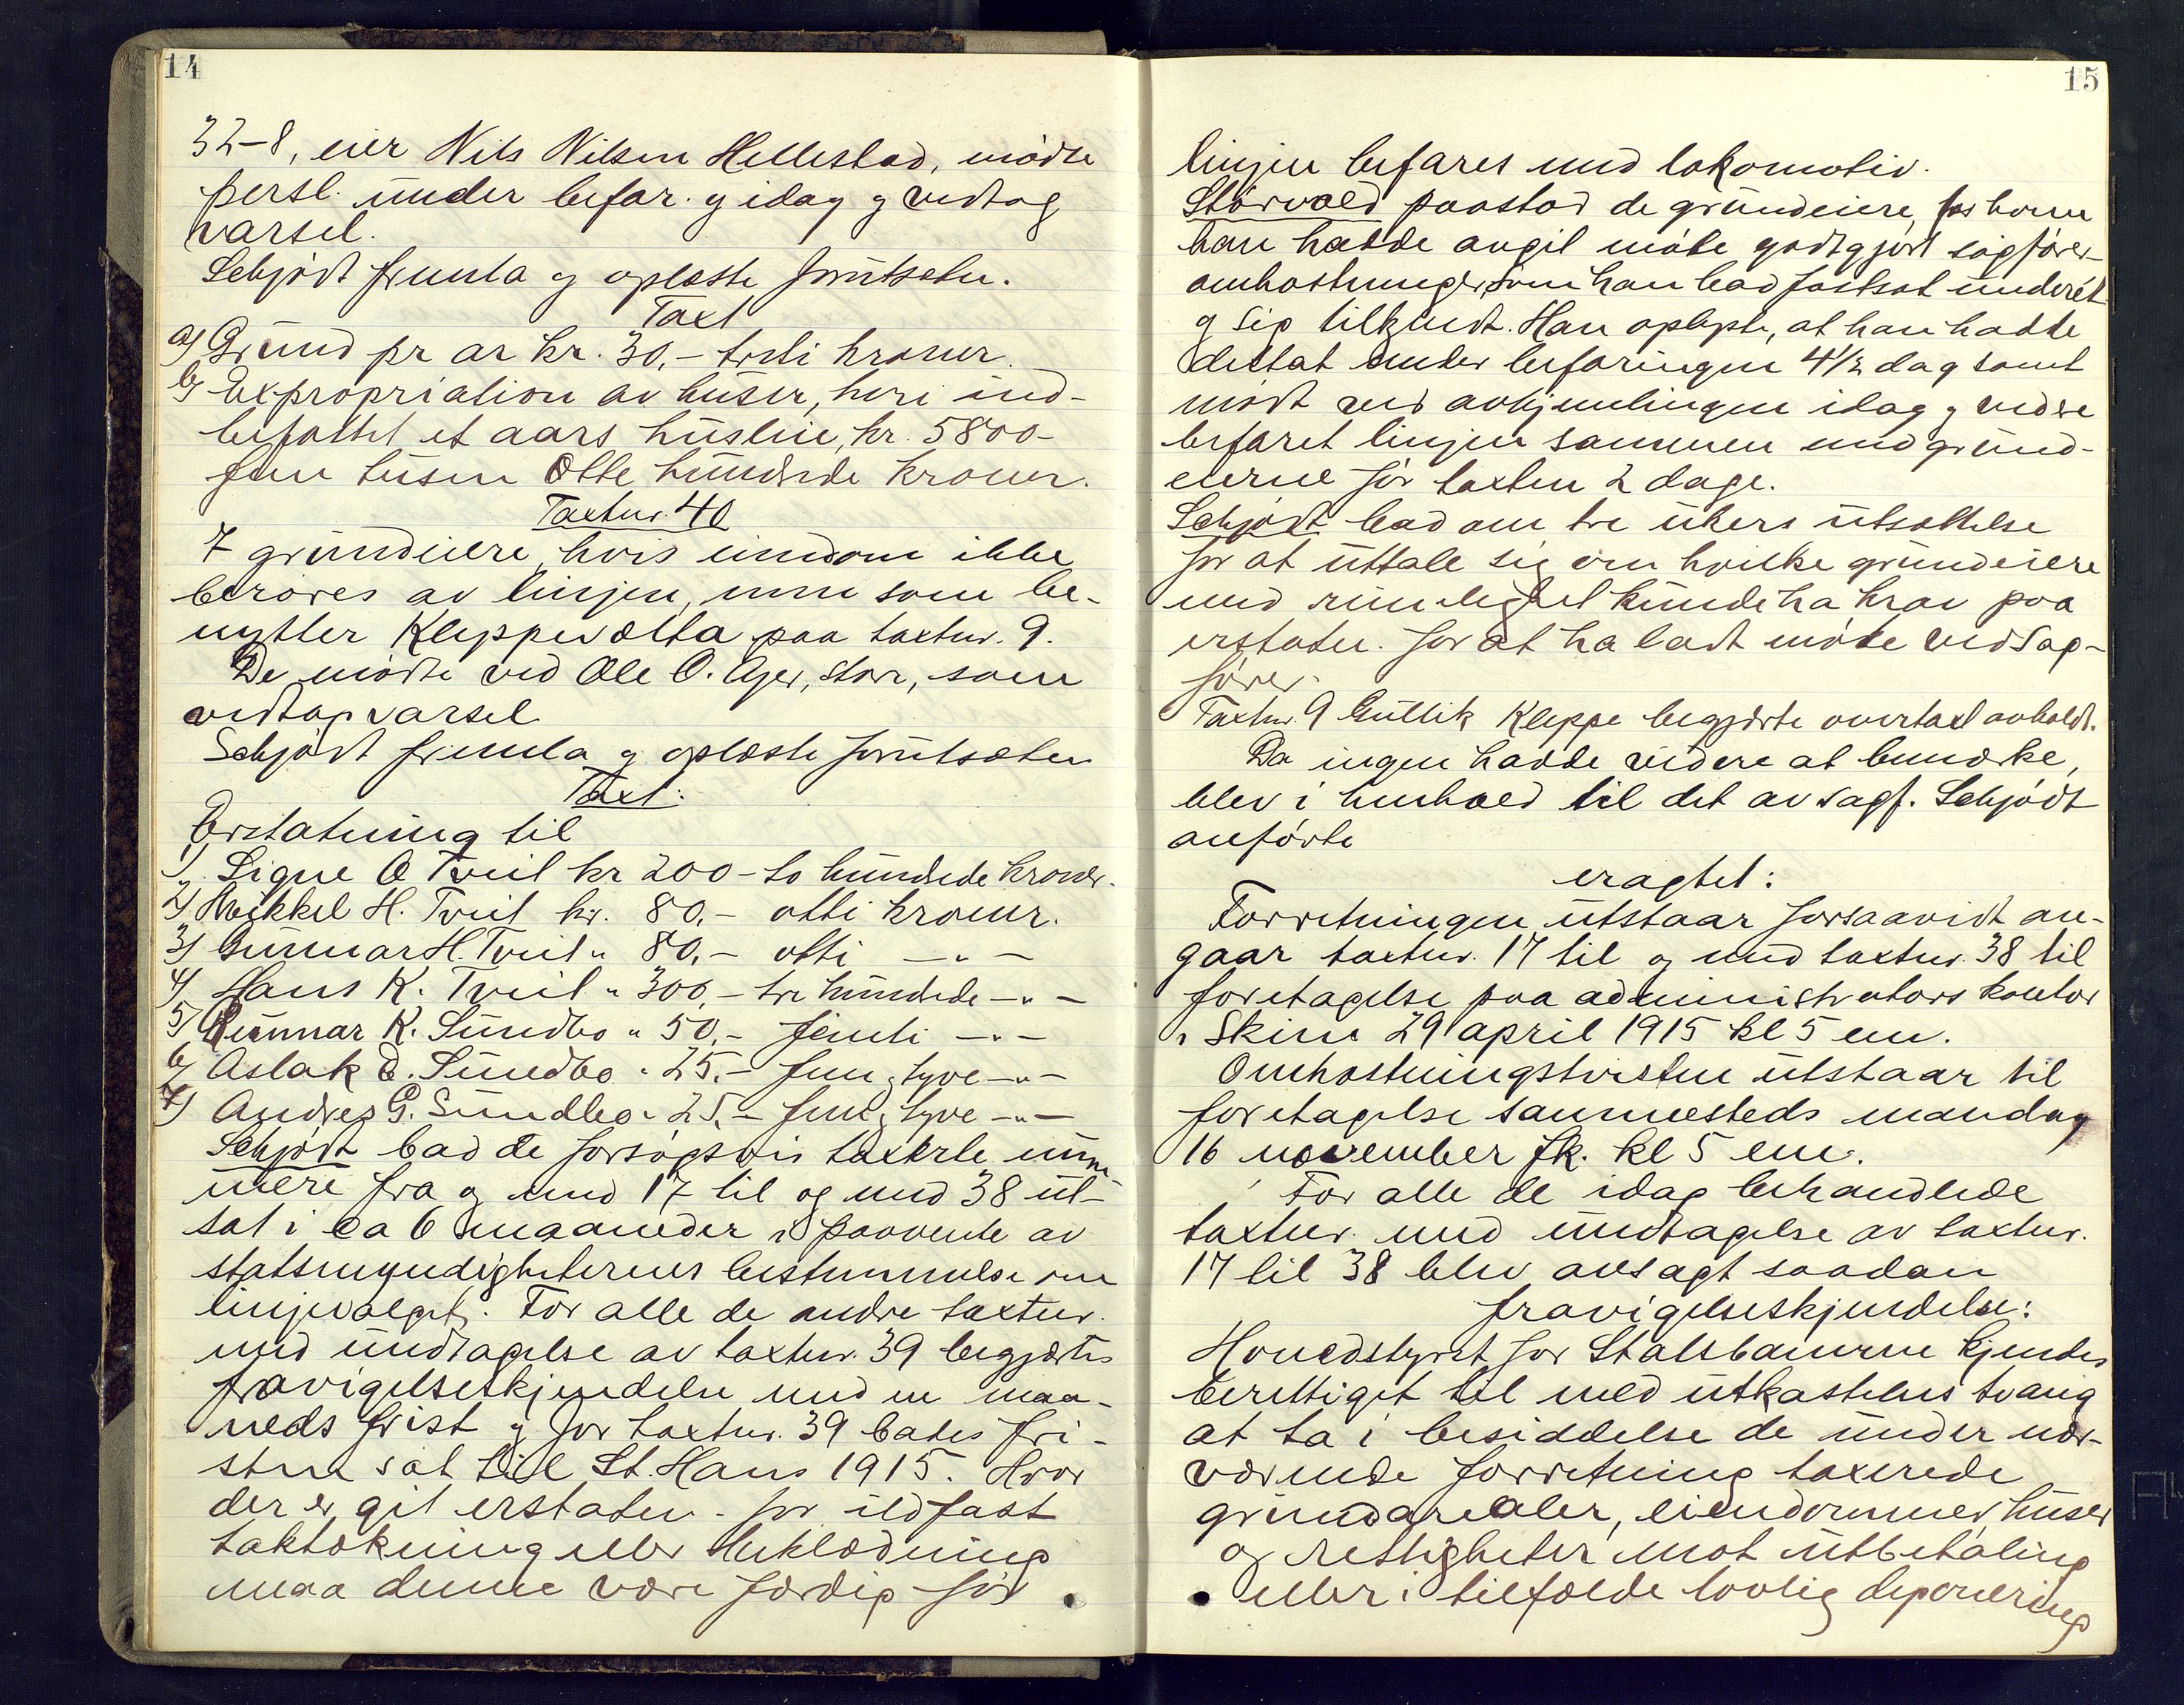 14
32-8, eier Nils Nilsen Hellestad, mødte
persl. under befar. g idag g vedtog
varsel.
Schjødt fremla g oplæste forutsætn.
Taxt
a) Grund pr ar kr. 30,- treti kroner.
b) Expropriation av huser, heri ind-
befattet et aars husleie, kr. 5800-
fem tusen otte hundrede kroner.
Taxtnr. 40
7 grundeiere, hvis eiendom ikke
berøres av linjen, men som be-
nytter Kleppevælta paa taxtnr. 9.
De mødte ved Ole O. Ajer, som
vedtog varsel
Schjødt fremla g oplæste forutsætn
Taxt:
Erstatning til
1) Signe O Tveit kr 200 - to hundrede kroner.
2) Mikkel H. Tveit kr. 80,- otti kroner.
3) Gunnar H. Tveit " 80,- otti -"-
4) Hans K. Tveit " 300,- tre hundrede -"-
5) Gunnar K. Sundbo " 50,- femti -"-
6) Aslak E. Sundbo " 25,- fem g tyve -"-
7) Andres G. Sundbo " 25,- fem g tyve -"-
Schjødt bad de forsøgsvis taxerte num-
mere fra g med 17 til og med 38 ut-
sat i ca 6 maaneder i paavente av
statsmyndigheternes bestemmelse om
linjevalget. For alle de andre taxtnr.
med undtagelse av taxtnr. 39 begjærtes
fravigelseskjendelse med en maa-
neds frist g for taxtnr. 39 bades fri-
sten sat til St. Hans 1915. Hvor
der er git erstatn. for ildfast
taktækning eller klædning
maa denne være færdig før
15
linjen befares med lokomotiv.
Størvold paastod de grundeiere, for hvem
han hadde angit møte godtgjort sagfører-
omkostninger, som han bad fastsat under ét
g sig tilkjendt. Han oplyste, at han hadde
deltat under befaringen 4 1/2 dag samt
mødt ved avhjemlingen idag g videre
befaret linjen sammen med grund-
eierne før taxten 2 dage.
Schjødt bad om tre ukers utsættelse
for at uttale sig om hvilke grundeiere
med rimelighet kunde ha krav paa
erstatn. for at ha latt møte ved sag-
fører.
Taxtnr. 9 Gullik Kleppe begjærte overtaxt avholdt.
Da ingen hadde videre at bemerke,
blev i henhold til det av sagf. Schjødt
anførte
eragtet:
Forretningen utstaar forsaavidt an-
gaar taxtnr. 17 til og med taxtnr. 38 til
foretagelse paa administrators kontor
i Skien 29 april 1915 kl 5 em.
Omkostningstvisten utstaar til
foretagelse sammesteds mandag
16 november fk. kl 5 em.
For alle de idag behandlede
taxtnr. med undtagelse av taxtnr.
17 til 38 blev avsagt saadan
fravigelseskjendelse:
Hovedstyret for Statsbanerne kjendes
berettiget til med utkastelses tvang
at ta i besiddelse de under nær-
værende forretning taxerede
grundarealer, eiendommer, huser
og rettigheter mot utbetaling
eller i tilfælde lovlig deponering